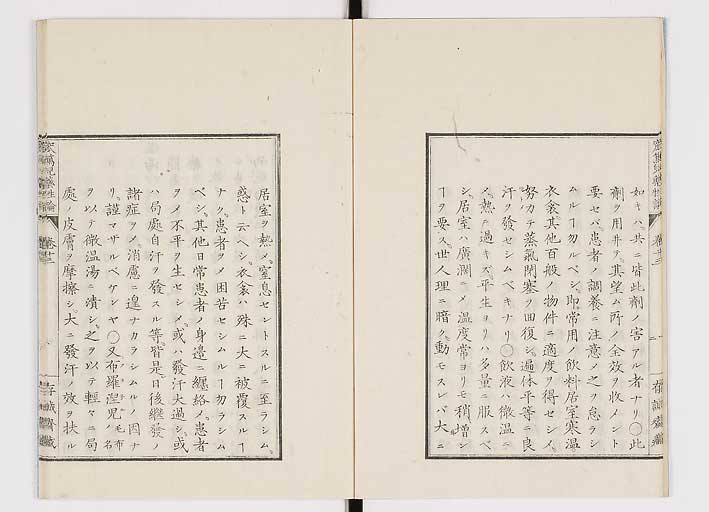 如キハ共ニ皆此劑ノ害アル者ナリ〇此
劑ヲ用井ヲ其望ム所ノ全效ヲ收メント
要セバ患者ノ調養ニ注意メ之ヲ怠ラシ
ムルヿ勿ルベシ即常用ノ飲料居室寒温
衣衾其他百般ノ物件ニ適度ヲ得セシメ
努カテ蒸氣閉塞ヲ回復シ遍体平等ニ良
汗ヲ發セシムベキナリ〇飲液ハ微温ニ
メ熱ニ過キズ平生ヨリハ多量ニ服スベ
シ居室ハ廣濶ニメ温度常ヨリモ稍増シ
ヿヲ要ス世人理ニ暗ク動モスレバ大ニ
居室ヲ熱メ窒息セントスルニ至ラシム
惑ト云ヘシ衣衾ハ殊ニ大ニ被覆スルヿ
ナク患者ヲメ困苦セシムルヿ勿ラシム
ベシ其他日常患者ノ身邉ニ纒絡メ患者
ヲメ不平ヲ生セシメ或ハ發汗大過シ或
ハ局處自汗ヲ發スル等皆是日後繼發ノ
諸症ヲメ消慮ニ遑ナカラシムルノ因ナ
リ謹マザルベケンヤ〇又布羅涅児毛布ノ名
ヲ以テ微温湯ニ漬シ之ヲ以テ輕々ニ局
處ノ皮膚ヲ摩擦シ大ニ發汗ノ效ヲ扶ル
卷廿二